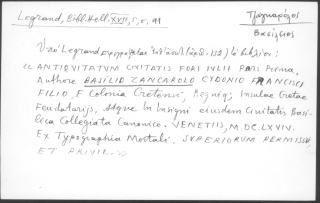 Legrand, Bibl. Hell. XVII, 5, σ, 99
Βασίλειος
Ὑπὸ Legrand
« ANTIQVITATVM CIVITATIS FORI IVLII PARS Prima,
Authore BASILIO ZANCAROLO CYDONIO FRANCISCI
FILIO, E Colonia Cretensi, Regniq; Insulae Cretae
Feudatarijs, Atque In Insigni eiusdem Civitatis Basi-
lica Collegiata Canonico. VENETIIS, M.DC.LXVIV.
Ex Typographia Mortali. SVPERIORVM PERMISSV
ET PRIVIL. »